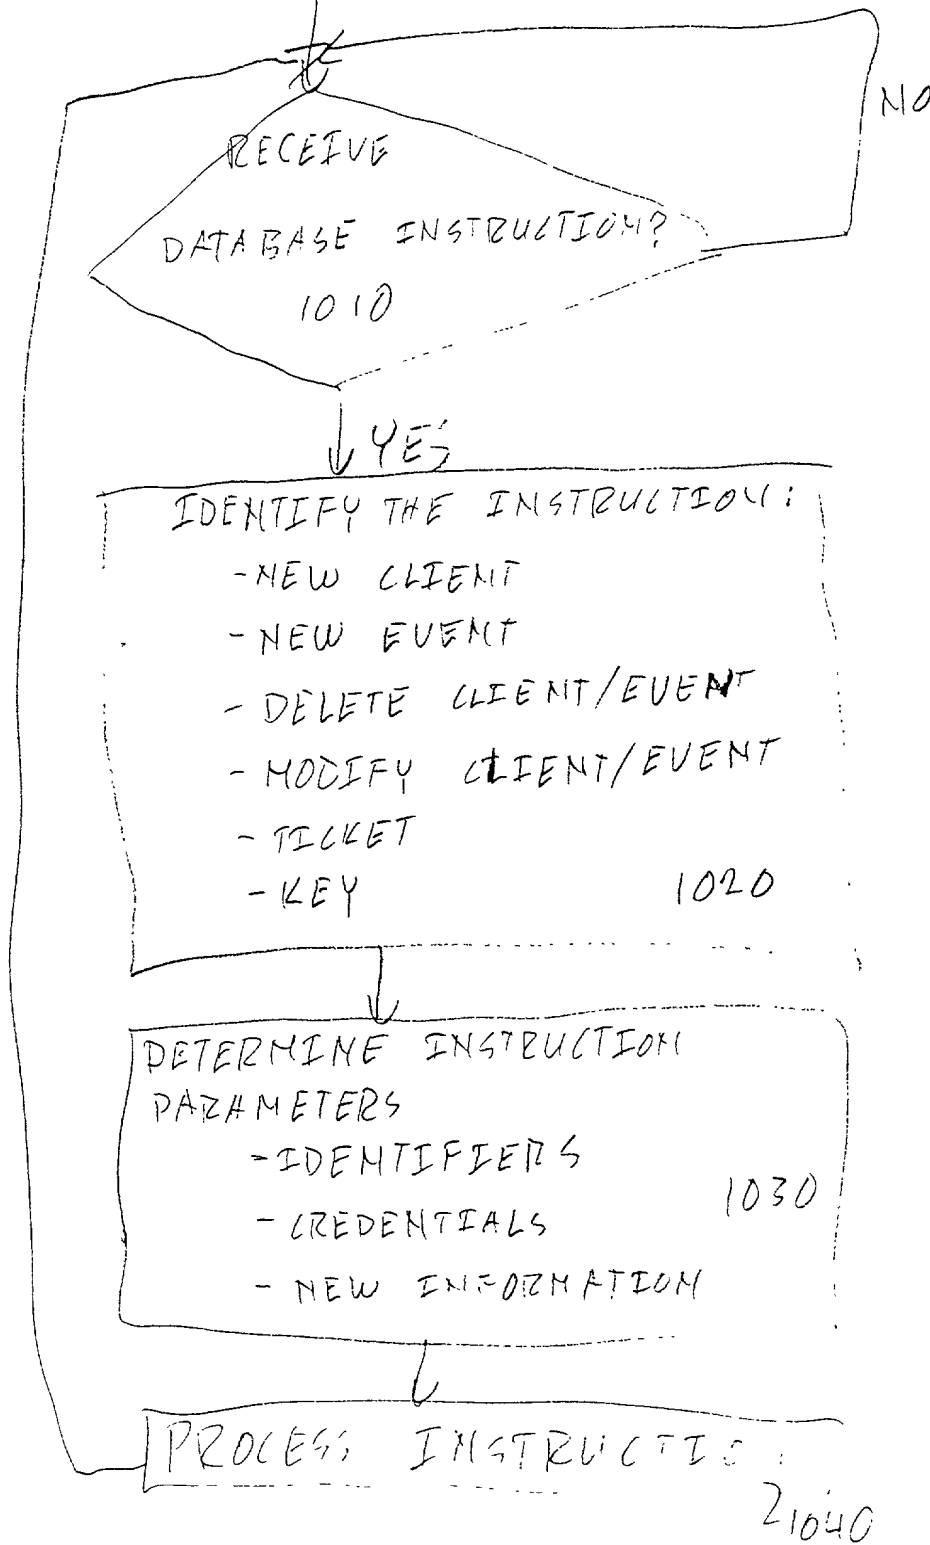 NO
RECEIVE
DATABASE INSTRUCTION?
1010
YES
IDENTIFY THE INSTRUCTION:
-NEW CLIENT
-NEW EVENT
- DELETE CLIENT/EVENT
- MODIFY CLIENT/EVENT
- TICKET
- KEY 1020
DETERMINE INSTRUCTION
PARAMETERS
-IDENTIFIERS
- CREDENTIALS 1030
- NEW INFORMATION
PROCESS INSTRUCTIO
1040